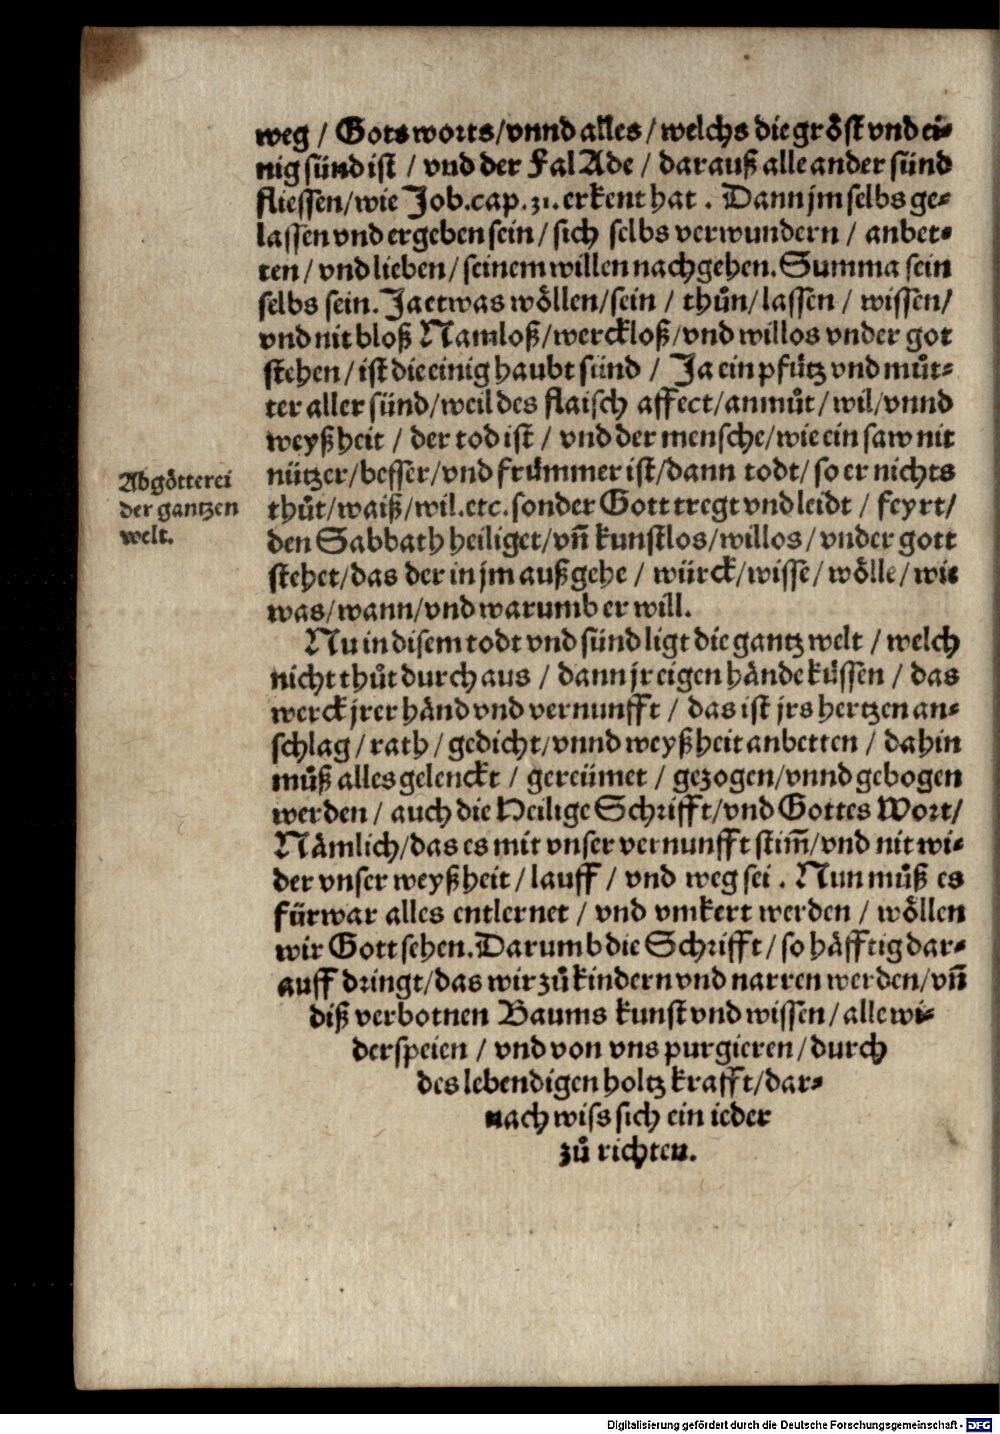 weg / Gots worts/vnnd alles / welchs die gröst vnd ei-
nig sünd ist / vnd der Fal Ade / darauß alle ander sünd
fliessen/wie Job.cap.31.erkent hat . Dann jm selbs ge-
lassen vnd ergeben sein / sich selbs verwundern / anbet-
ten / vnd lieben / seinem willen nachgehen. Summa sein
selbs sein. Ja etwas wöllen/sein / thůn/lassen / wissen/
vnd nit bloß Namloß/werckloß/vnd willos vnder got
stehen / ist die einig haubt sünd / Ja ein pfütz vnd můt-
ter aller sünd/weil des flaisch affect/anmůt/wil/vnnd
weyßheit / der tod ist / vnd der mensche/wie ein saw nit
nützer/besser/vnd frümmer ist/dann todt/so er nichts
thůt/waiß/wil.etc.sonder Gott tregt vnd leidt / feyrt/
den Sabbath heiliget/vñ kunstlos/willos/vnder gott
stehet/das der in jm außgehe / würck/wisse/wölle/wie
was/wann/vnd warumb er will.
Abgötterei
der gantzen
welt.
Nu in disem todt vnd sünd ligt die gantz welt / welch
nicht thůt durchaus / dann jr eigen hände küssen / das
werck jrer händ vnd vernunfft / das ist jrs hertzen an-
schlag / rath / gedicht/vnnd weyßheit anbetten / dahin
můß alles gelenckt / gereümet / gezogen/vnnd gebogen
werden / auch die Heilige Schrifft/vnd Gottes Wort/
Nämlich/das es mit vnser vernunfft stim̃/vnd nit wi-
der vnser weyßheit / lauff / vnd weg sei . Nun můß es
fürwar alles entlernet / vnd vmkert werden / wöllen
wir Gott sehen. Darumb die Schrifft / so häfftig dar-
auff dringt/das wir zů kindern vnd narren werden/vñ
diß verbotnen Baums kunst vnd wissen / alle wi-
derspeien / vnd von vns purgieren / durch
des lebendigen holtz krafft/dar-
nach wiss sich ein ieder
zů richten.
Digitalisierung gefördert durch die Deutsche Forschungsgemeinschaft - DFG